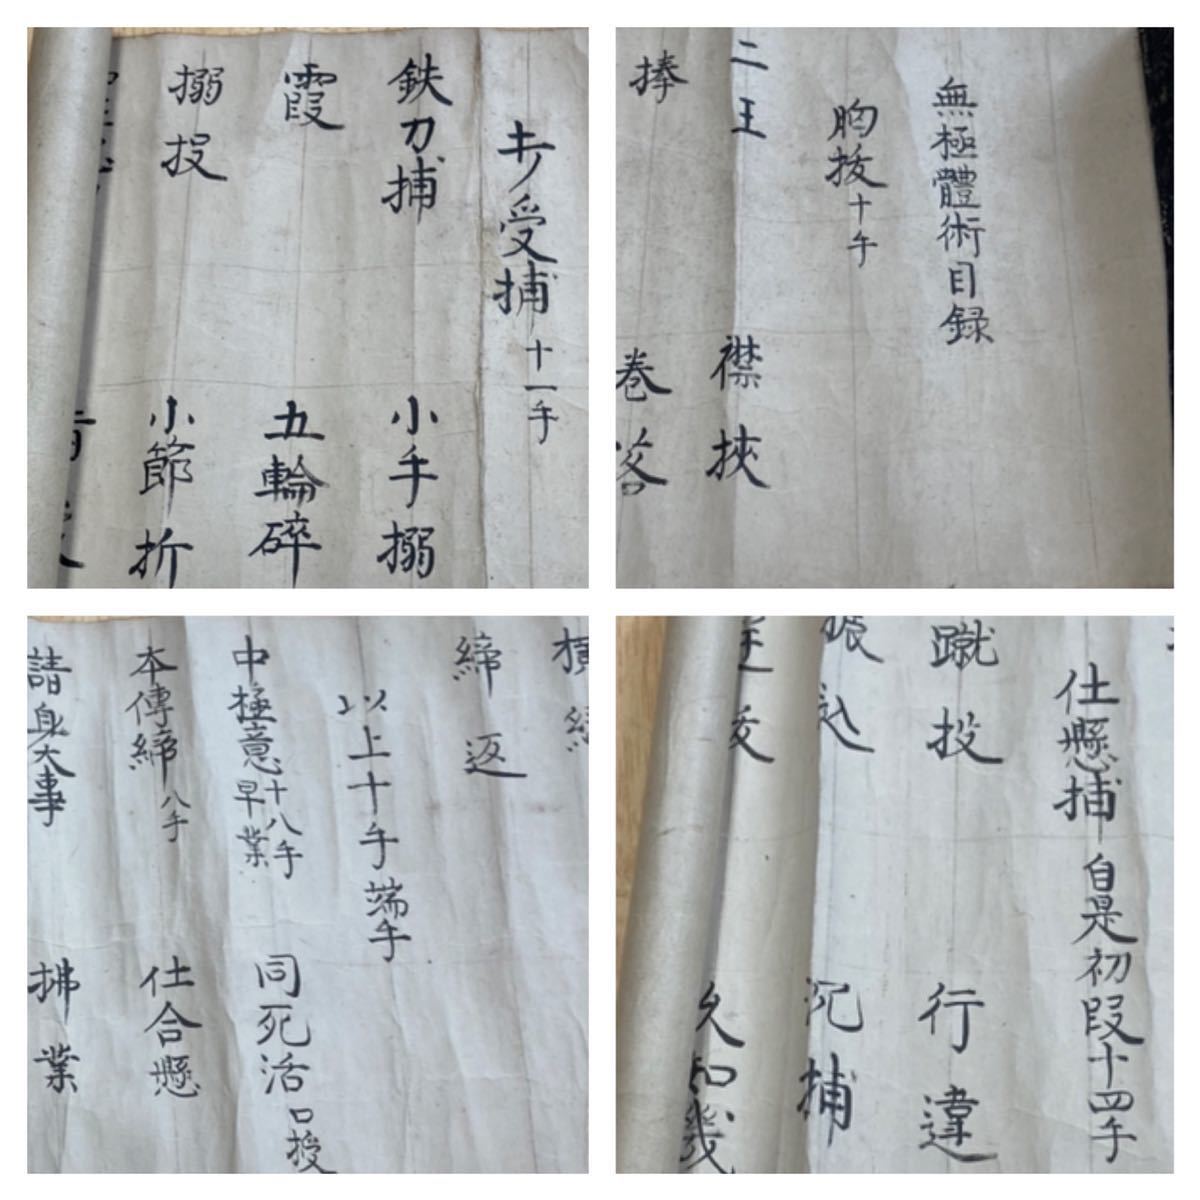 キノ受捕十一手
鉄刀捕
小手搦
霞
五輪碎
搦投
小節折
無極體術目録
胸抜十手
二王
襟挾
捧
巻
締返
以上十手端手
中極意十八手
早業
同死活口授
本傳締八手
仕合懸
請身大事
拂業
仕懸捕自是初段十四手
蹴投
行違
振込
沉捕